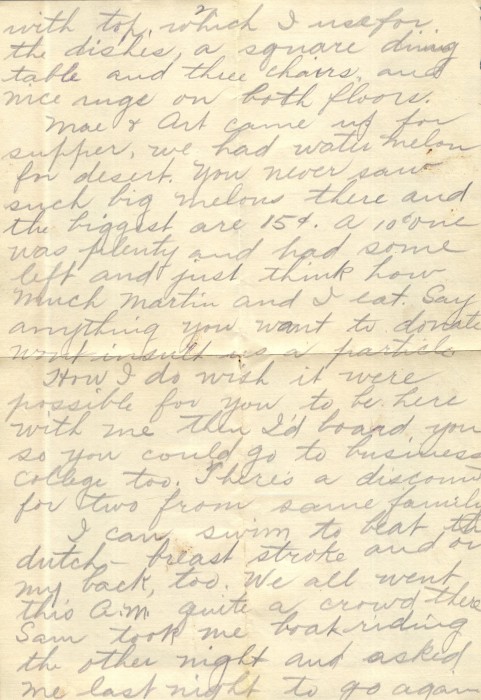 2
with top, which I use for
the dishes, a square dining
table and three chairs, and
nice rugs on both floors.
Mae & Art came up for
supper, we had water melon
for desert. You never saw
such big melons there and
the biggest are 15¢. A 10¢ one
was plenty and had some
left and just think how
much Martin and I eat. Say
anything you want to donate
wont insult us a particle
How I do wish it were
possible for you to be here
with me then I'd board you
so you could go to business
college too. There's a discount
for two from same family
I can swim to beat the
dutch - breast stroke and on
my back, too. We all went
this A.M. quite a crowd there
Sam took me boat riding
the other night and asked
me last night to go again